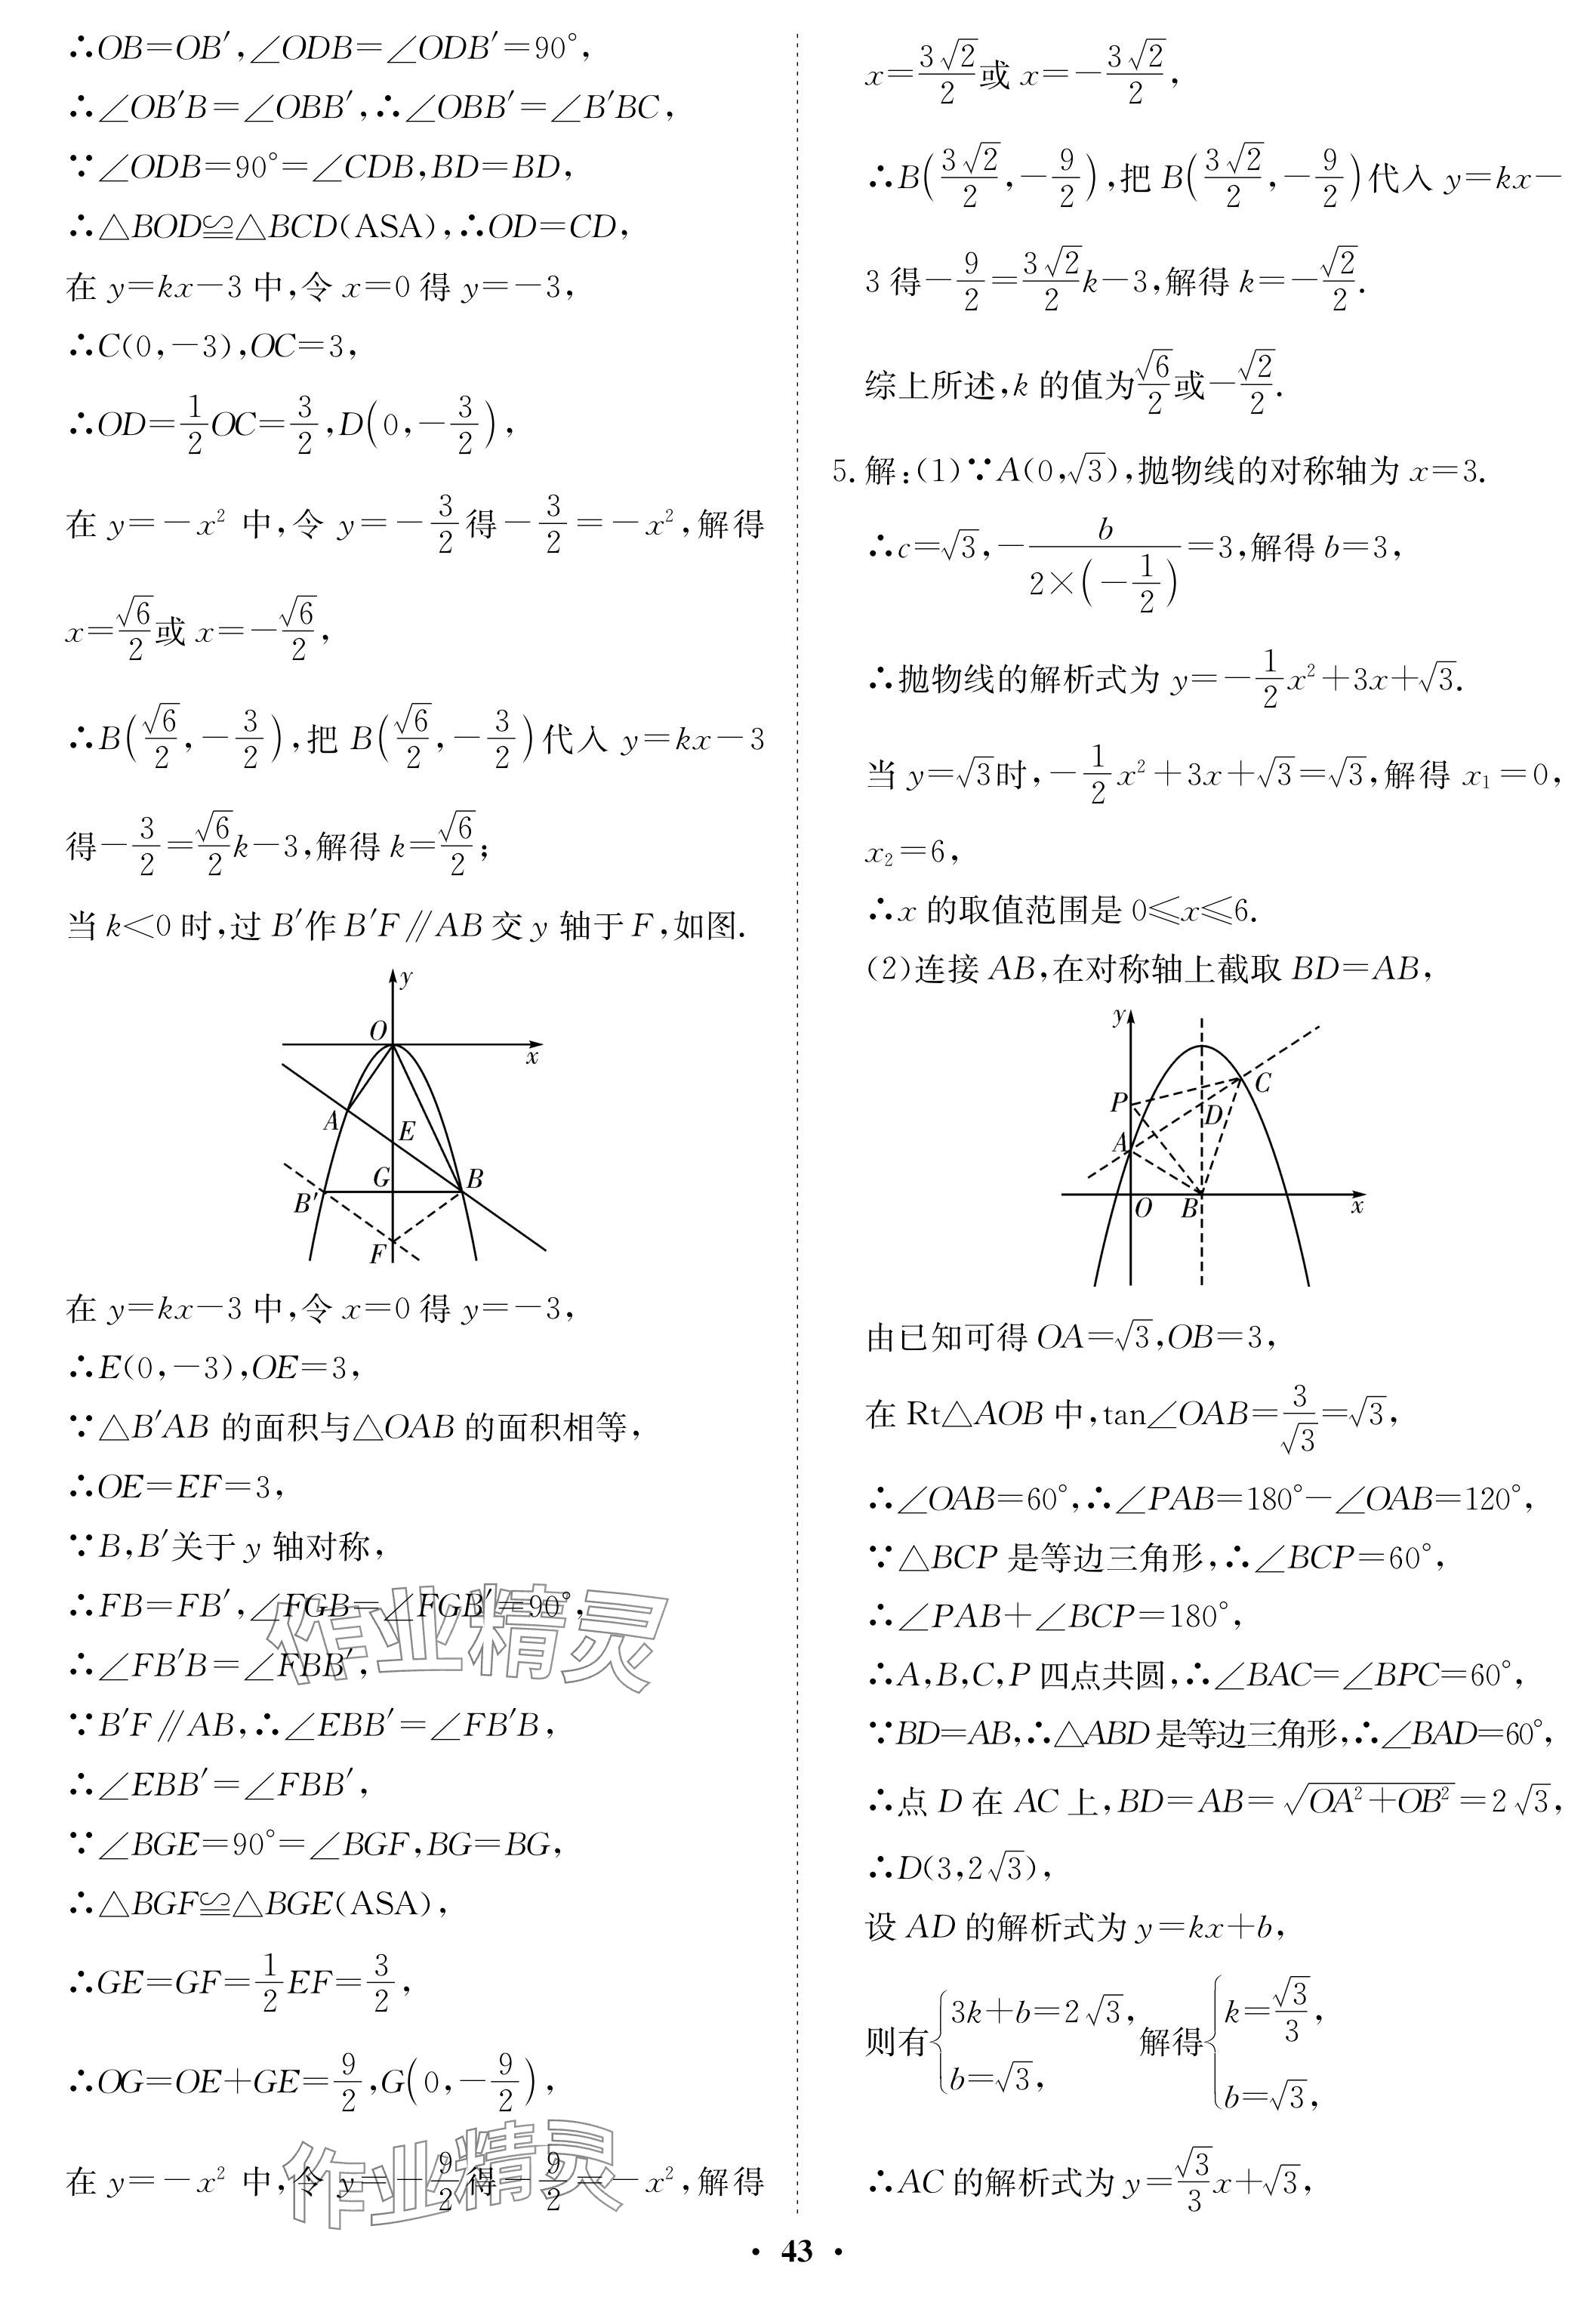 ∴OB=OB′,∠ODB=∠ODB′=90°,
∴∠OB′B=∠OBB′,∴∠OBB′=∠B′BC,
∵∠ODB=90°=∠CDB,BD=BD,
∴△BOD≌△BCD(ASA),∴OD=CD,
在 y=kx-3 中,令 x=0 得 y=-3,
∴C(0,-3),OC=3,
∴OD=1/2 OC=3/2,D(0,-3/2),
在 y=-x² 中,令 y=-3/2 得 -3/2=-x²,解得
x=√6/2 或 x=-√6/2,
∴B(√6/2,-3/2),把 B(√6/2,-3/2)代入 y=kx-3
得-3/2=√6/2 k-3,解得 k=√6/2;
当 k<0 时,过 B′作 B′F∥AB 交 y 轴于 F,如图.
y
O
x
A
E
G
B
B′
F
在 y=kx-3 中,令 x=0 得 y=-3,
∴E(0,-3),OE=3,
∵△B′AB 的面积与△OAB 的面积相等,
∴OE=EF=3,
∵B,B′关于 y 轴对称,
∴FB=FB′,∠FGB=∠FGB′=90°,
∴∠FB′B=∠FBB′,
∵B′F∥AB,∴∠EBB′=∠FB′B,
∴∠EBB′=∠FBB′,
∵∠BGE=90°=∠BGF,BG=BG,
∴△BGF≌△BGE(ASA),
∴GE=GF=1/2 EF=3/2,
∴OG=OE+GE=9/2,G(0,-9/2),
在 y=-x² 中,令 y=-9/2 得-9/2=-x²,解得
作业精灵
作业精灵
x=3√2/2 或 x=-3√2/2,
∴B(3√2/2,-9/2),把 B(3√2/2,-9/2)代入 y=kx-
3 得-9/2=3√2/2 k-3,解得 k=-√2/2.
综上所述,k 的值为√6/2或-√2/2.
5. 解:(1)∵A(0,√3),抛物线的对称轴为 x=3.
∴c=√3,-b/(2×(-1/2))=3,解得 b=3,
∴抛物线的解析式为 y=-1/2 x²+3x+√3.
当 y=√3时,-1/2 x²+3x+√3=√3,解得 x₁=0,
x₂=6,
∴x 的取值范围是 0≤x≤6.
(2)连接 AB,在对称轴上截取 BD=AB,
y
P
C
D
A
O
B
x
由已知可得 OA=√3,OB=3,
在 Rt△AOB 中,tan∠OAB=3/√3=√3,
∴∠OAB=60°,∴∠PAB=180°-∠OAB=120°,
∵△BCP 是等边三角形,∴∠BCP=60°,
∴∠PAB+∠BCP=180°,
∴A,B,C,P 四点共圆,∴∠BAC=∠BPC=60°,
∵BD=AB,∴△ABD 是等边三角形,∴∠BAD=60°,
∴点 D 在 AC 上,BD=AB=√(OA²+OB²)=2√3,
∴D(3,2√3),
设 AD 的解析式为 y=kx+b,
则有{3k+b=2√3, b=√3, 解得{k=√3/3, b=√3,
∴AC 的解析式为 y=√3/3 x+√3,
· 43 ·